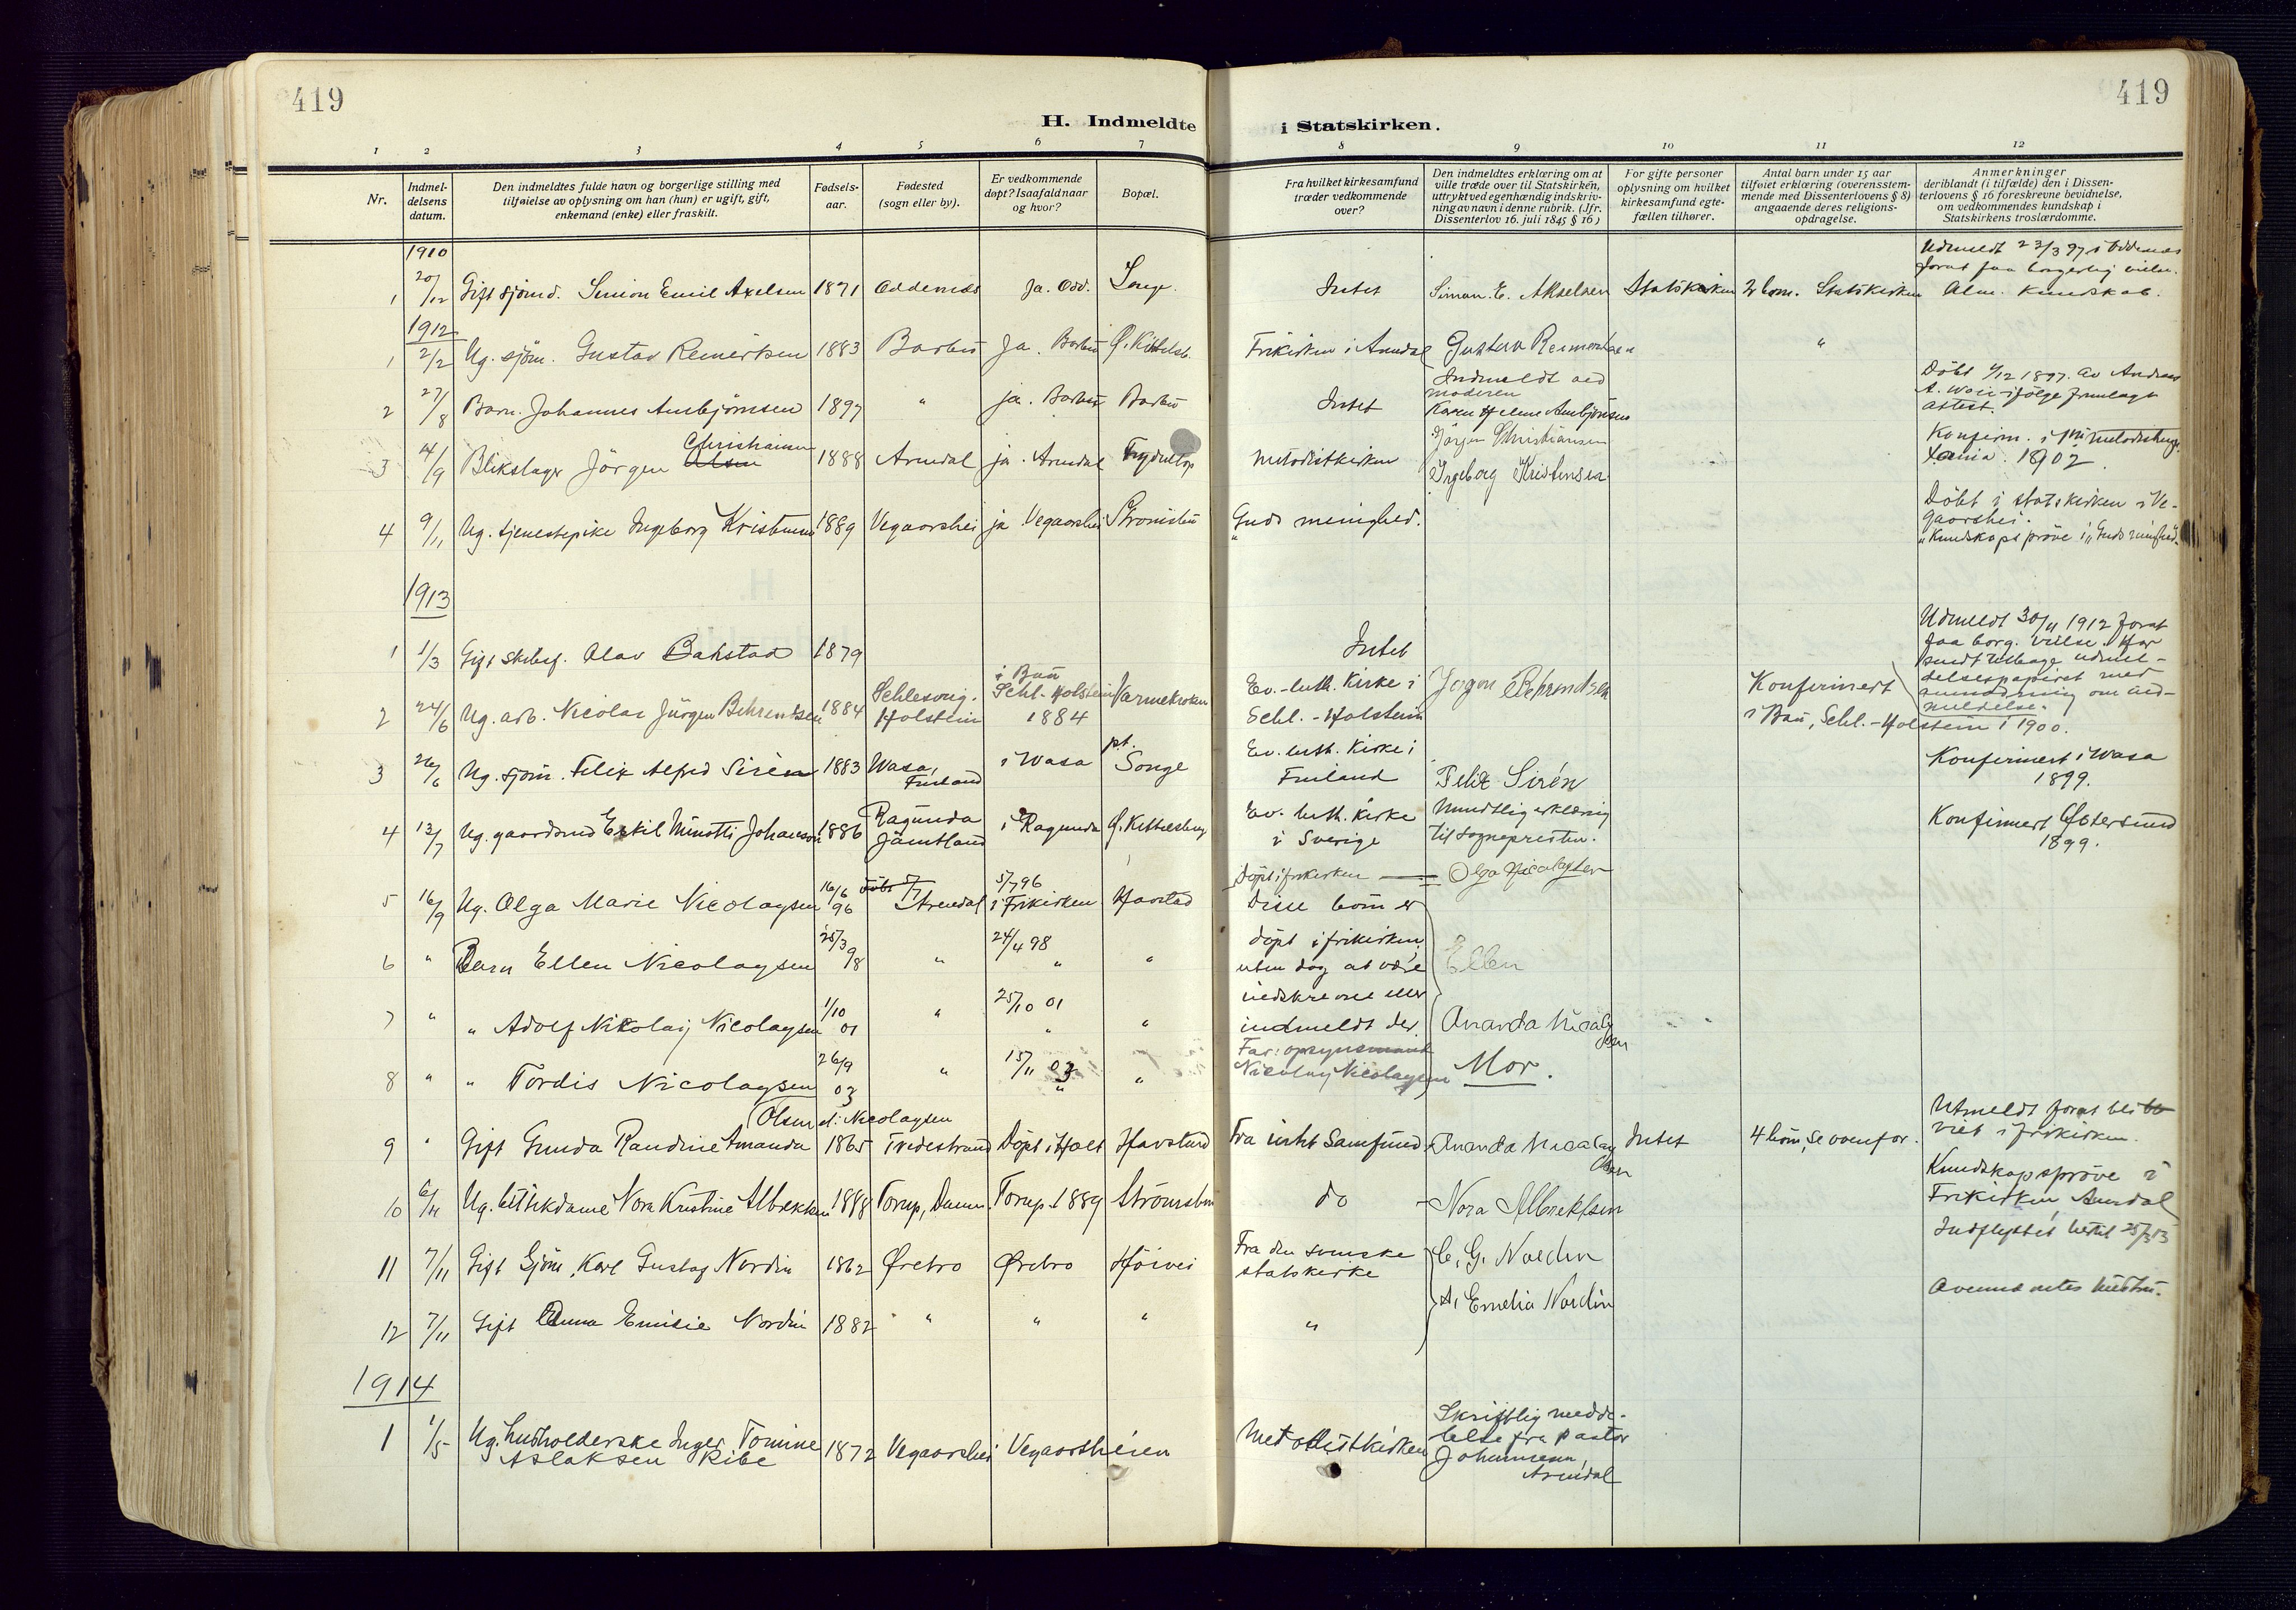 419
419
H. Indmeldte i Statskirken.
1 2 3 4 5 6 7 8 9 10 11 12
Nr.
Indmel-
delsens
datum.
Den indmeldtes fulde navn og borgerlige stilling med
tilføielse av oplysning om han (hun) er ugift, gift,
enkemand (enke) eller fraskilt.
Fødsels-
aar.
Fødested
(sogn eller by).
Er vedkommende
døpt? Isaafald naar
og hvor?
Bopæl.
Fra hvilket kirkesamfund
træder vedkommende
over?
Den indmeldtes erklæring om at
ville træde over til Statskirken,
uttrykt ved egenhændig indskriv-
ning av navn i denne rubrik. (Jfr.
Dissenterlov 16. juli 1845 § 16)
For gifte personer
oplysning om hvilket
kirkesamfund egte-
fællen tilhører.
Antal barn under 15 aar
tilføiet erklæring (overensstem-
mende med Dissenterlovens § 8)
angaaende deres religions-
opdragelse.
Anmerkninger
deriblandt (i tilfælde) den i Dissen-
terlovens § 16 foreskrevne bevidnelse,
om vedkommendes kundskap i
Statskirkens troslærdomme.
1910
1 20/12 Gift sjømd. Simon Emil Axelsen 1871 Oddernes Ja. Odd. Songe Intet Simon. E. Akselsen Statskirken 2 børn. Statskirken
Udmeldt 23/3 97 i Oddernes
forat faa borgerlig vielse.
Alm. Kundskab.
1912
1 2/2 Ug. sjøm. Gustav Reinertsen 1883 Barbu Ja. Barbu Ø. Kittelsb. Frikirken i Arendal Gustav Reinertsen "
2 27/8 Barn. Johannes Ambjörnsen 1897 " ja. Barbu Barbu Intet
Indmeldt ved
moderen
Karen Helene Ambjörnsen
Döbt 4/12 1897. av Andreas
A. ifölge fremlagt
attest.
3 14/9 Blikslager Jörgen Olsen Christiansen 1888 Arendal ja. Arendal Metodistkirken Jörgen Christiansen
Konfirm. i metodistmenigh.
Xania. 1902.
4 9/11 Ug. tjenestepike Ingeborg Kristensen 1889 Vegaarshei ja Vegaarshei Strømsbu "Guds menighed. Ingeborg Kristensen
Döbt i statskirken i Ve-
gaarshei.
Kundskapsprøve i "Guds menighed.
1913
1 1/3 Gift skibsf. Olav Bakstad 1879 Intet
Udmeldt 30/11 1912 forat
faa borg. vielse. Har
sendt tilbage udmel-
delsespapiret med
anmodning om ind-
meldelse.
2 24/6 Ug. arb. Nicolai Jürgen Behrendsen 1884
Schlesvig.
Holstein
i Bau
Schl.-Holstein
1884
Varmekroken
Ev.-luth. Kirke i
Schl.-Holstein
Jørgen Behrendsen
Konfirmert
i Bau, Schl.-Holstein i 1900.
3 26/6 Ug. sjøm. Felix Alfred Sirén 1883
Wasa,
Finland
i Wasa
pt.
Songe
Ev. luth. Kirke i
Finland
Felix Sirén
Konfirmert i Wasa
1899.
4 13/7 Ug. gaardsmd Eskil Minotti Johanson 1886
Ragunda
Jämtland
i Ragunda Ø. Kittelsbug
Ev. luth. Kirke
i Sverige
Mundtlig erklæring
til sognepresten.
Konfirmert Østersund
1899.
5 16/9 Ug. Olga Marie Nicolaysen 16/6 96 döbt 5/7 Arendal
5/7 96
i Frikirken
Havstad
Döpt i frikirken — Olga Nicolaysen
Disse börn er
döpt i frikirken,
uten dog at være
indskrevne eller
indmeldt der.
Far: opsynsmand
Nicolay Nicolaysen
6 " Barn Ellen Nicolaysen 25/3 98 " 24/4 98 " " Ellen
7 " " Adolf Nikolaij Nicolaysen 1/10 01 " 25/10 01 " " Amanda Nicolaysen
8 " " Tordis Nicolaysen 26/9 03 " 15/11 03 " " Mor.
(Olsen el: Nicolaysen
9 " Gift Gunda Randine Amanda 1865 Tvedestrand Döpt i Holt Havstad Fra intet Samfund Amanda Nicolaysen Olsen Intet 4 börn, se ovenfor.
Utmeldt forat bli
viet i frikirken.
10 6/11 Ug. butikdame Nora Kristine Albrektsen 1888 Torup, Danm. Torup 1889 Strömsbu do Nora Albrektsen
Kundskapsprøve i
Frikirken, Arendal
11 7/11 Gift Sjöm. Karl Gustaf Nordin 1862 Örebro Örebro Höivei
Fra den svenske
statskirke
C. G. Nordin
Indflyttet hertil 25/3 13
12 7/11 Gift Anna Emilie Nordin 1882 " " " " A. Emelia Nordin
1914
1 1/5
Ug. husholderske Inger Tomine
Aslaksen Ribe
1872 Vegaarshei Vegaarsheien Metodistkirken
Skriftlig medde-
lelse fra pastor
Johannesen,
Arendal